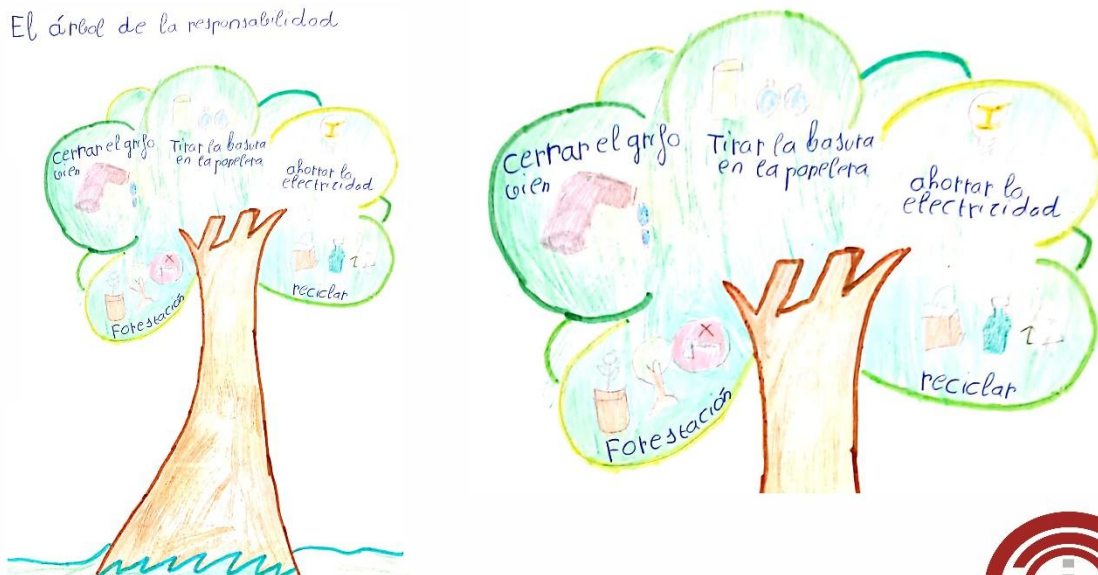 El árbol de la responsabilidad
cerrar el grifo
bien
Tirar la basura
en la papelera
ahorrar la
electricidad
reciclar
Forestación
cerrar el grifo
bien
Tirar la basura
en la papelera
ahorrar la
electricidad
reciclar
Forestación